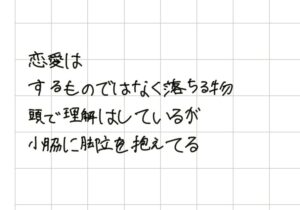 恋愛は
するものではなく落ちる物
頭で理解はしているが
小脇に脚立を抱えてる